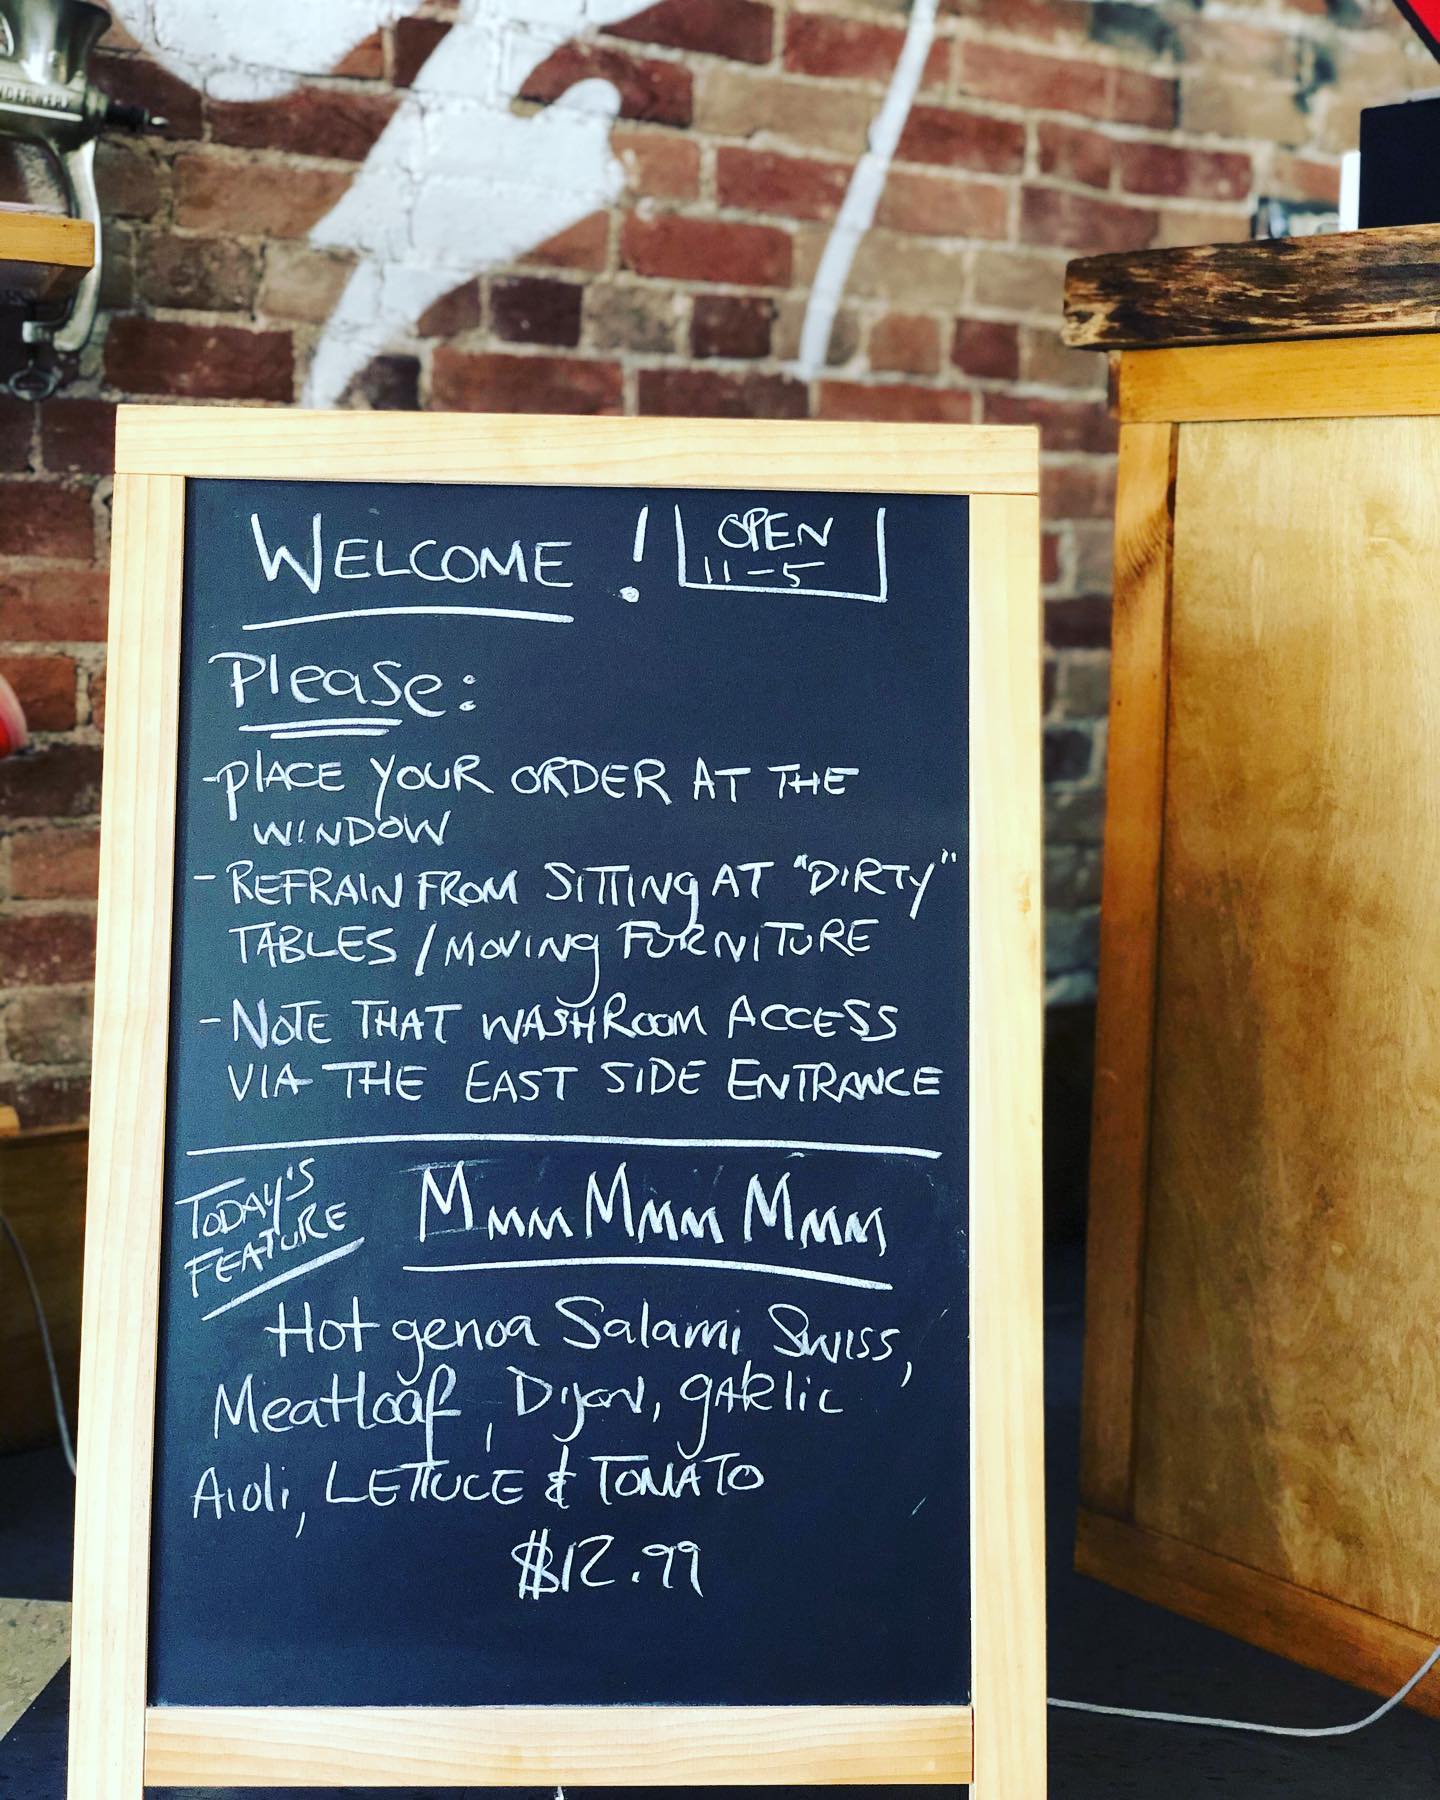 WELCOME!
OPEN
11-5
Please:
- PLACE YOUR ORDER AT THE
WINDOW
- REFRAIN FROM SITTING AT "DIRTY"
TABLES / MOVING FURNITURE
- NOTE THAT WASHROOM ACCESS
VIA THE EAST SIDE ENTRANCE
TODAY'S
FEATURE
Mmm Mmm Mmm
Hot genoa Salami Swiss,
Meatloaf, Dijon, garlic
Aioli, LETTUCE & TOMATO
$12.99